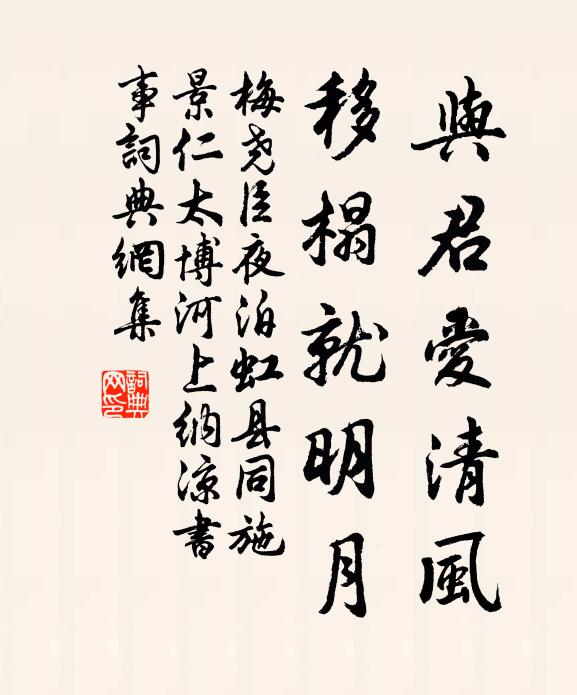 與君愛清風
移榻就明月
梅堯臣夜泊虹县同施
景仁太博河上納涼書
事詞典網集
詞典
网印